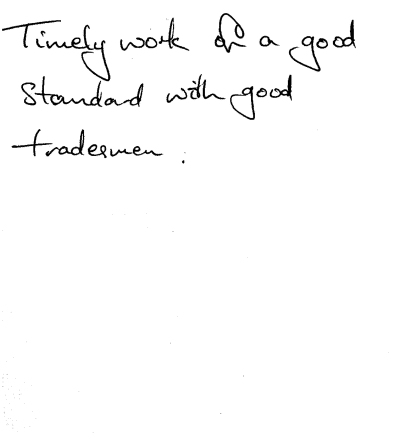 Timely work of a good
standard with good
tradesmen.